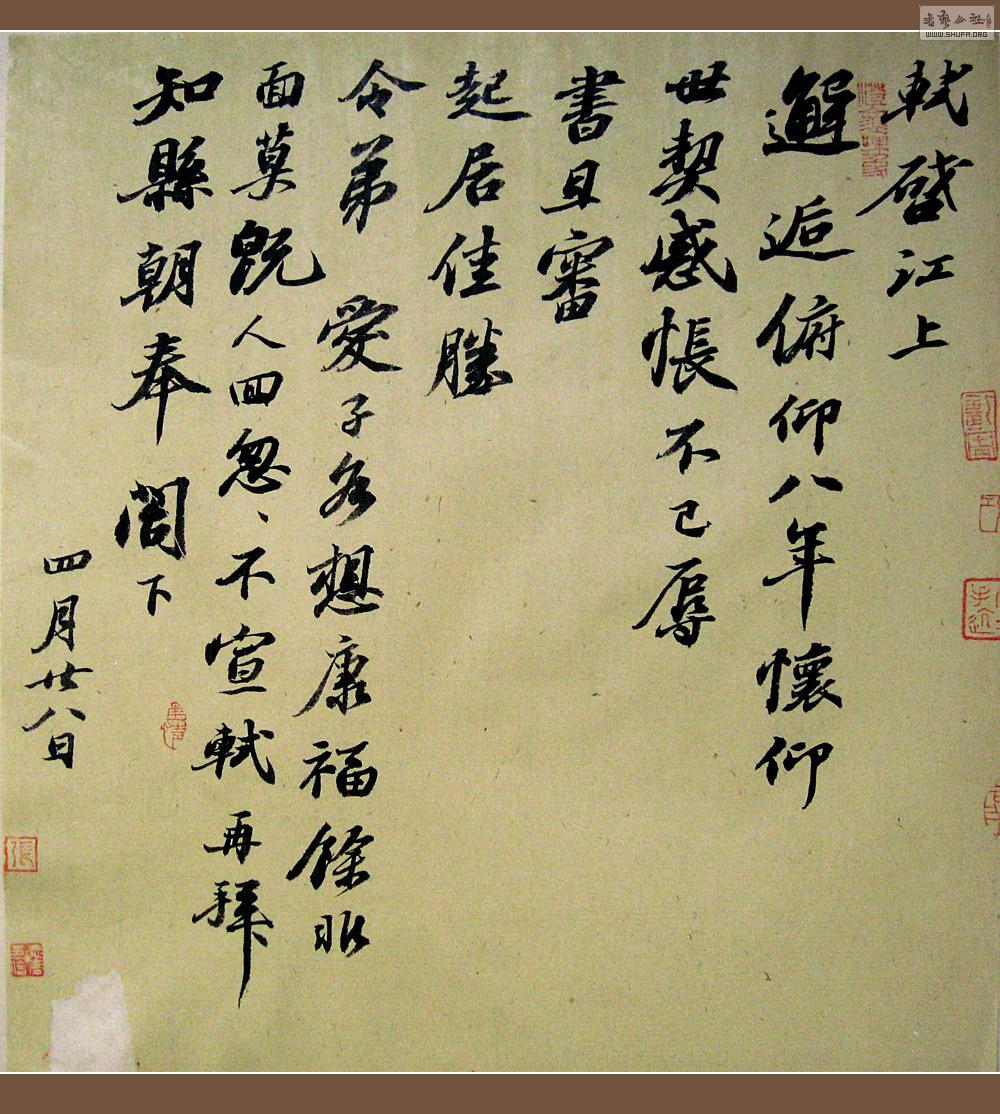 軾啓江上
邂逅俯仰八年懷仰
世契感悵不已辱
書且審
起居佳勝
令弟愛子各想康福餘非
面莫既人回怱、不宣軾再拜
知縣朝奉閣下
四月廿八日
張
書藝公社
WWW.SHUFA.ORG